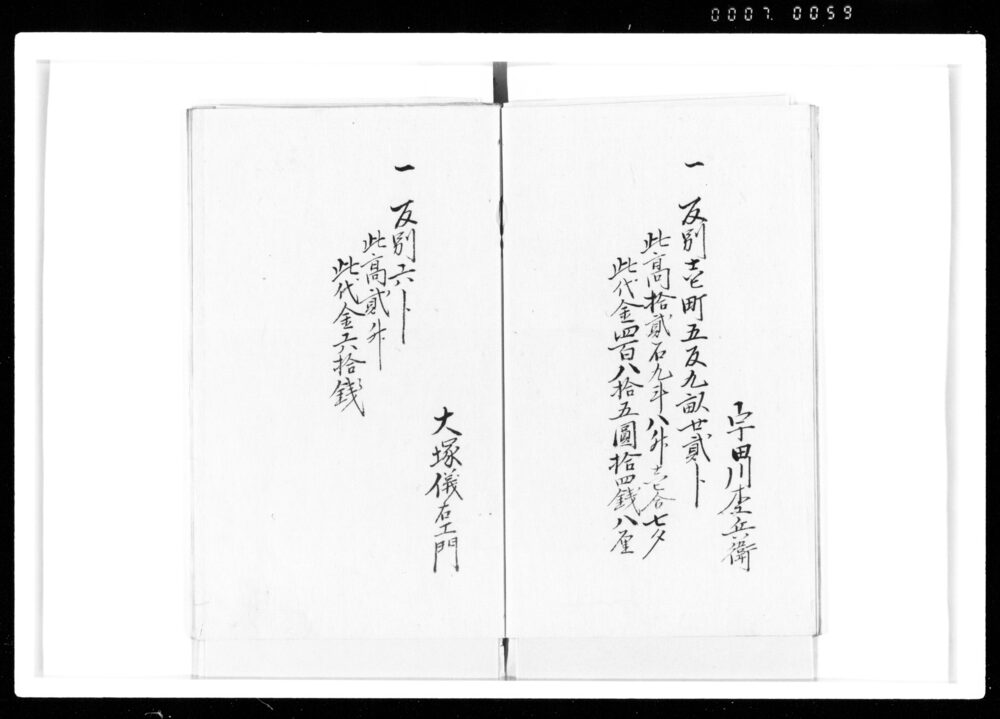 0007 0059
宇田川杢兵衛
一 反別壱町五反九畝廿貳卜
此高拾貳石九斗八升壱合七夕
此代金四百八拾五圓拾四錢八厘
大塚儀右エ門
一 反別六卜
此高貳升
此代金六拾錢